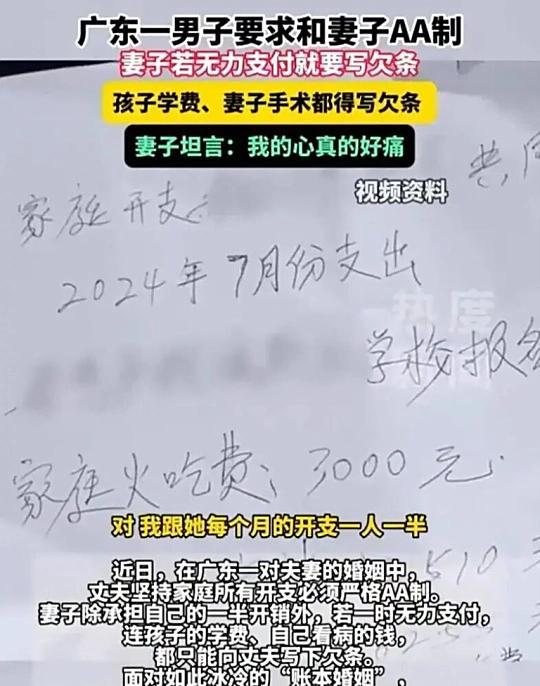 广东一男子要求和妻子AA制
妻子若无力支付就要写欠条
孩子学费、妻子手术都得写欠条
妻子坦言：我的心真的好痛
视频资料
家庭开支：
2024年7月份支出
热度
学校报
家庭火吃费；3000元
对 我跟她每个月的开支一人一半
510
近日，在广东一对夫妻的婚姻中，
丈夫坚持家庭所有开支必须严格AA制。
妻子除承担自己的一半开销外，若一时无力支付，
连孩子的学费、自己看病的钱，
都只能向丈夫写下欠条。
面对如此冰冷的“账本婚姻”，